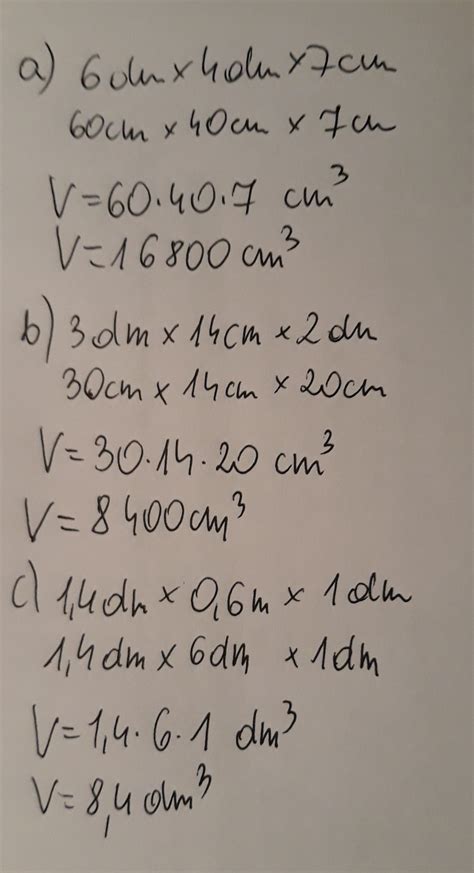 a) 6dm x 4dm x 7cm
60cm x 40cm x 7cm
V=60·40·7 cm³
V=16800 cm³
b) 3dm x 14cm x 2dm
30cm x 14cm x 20cm
V=30·14·20 cm³
V=8400cm³
c) 1,4dm x 0,6m x 1dm
1,4dm x 6dm x 1dm
V=1,4·6·1 dm³
V=8,4dm³